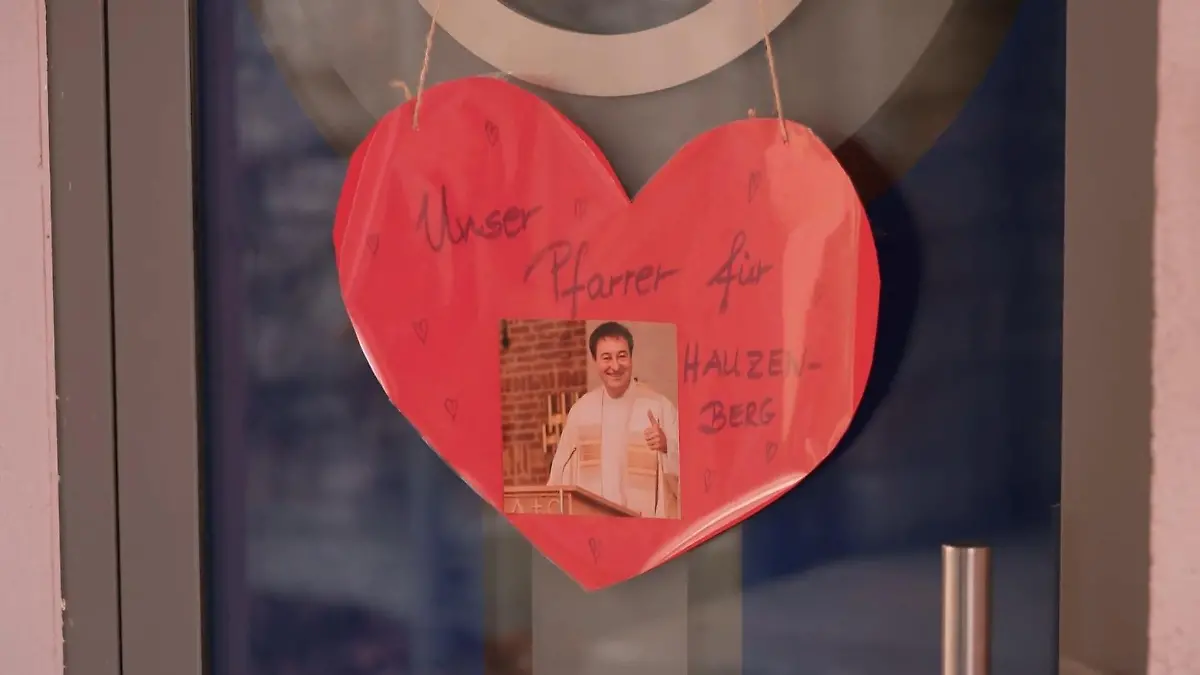 Unser
Pfarrer für
HAUZEN-
BERG